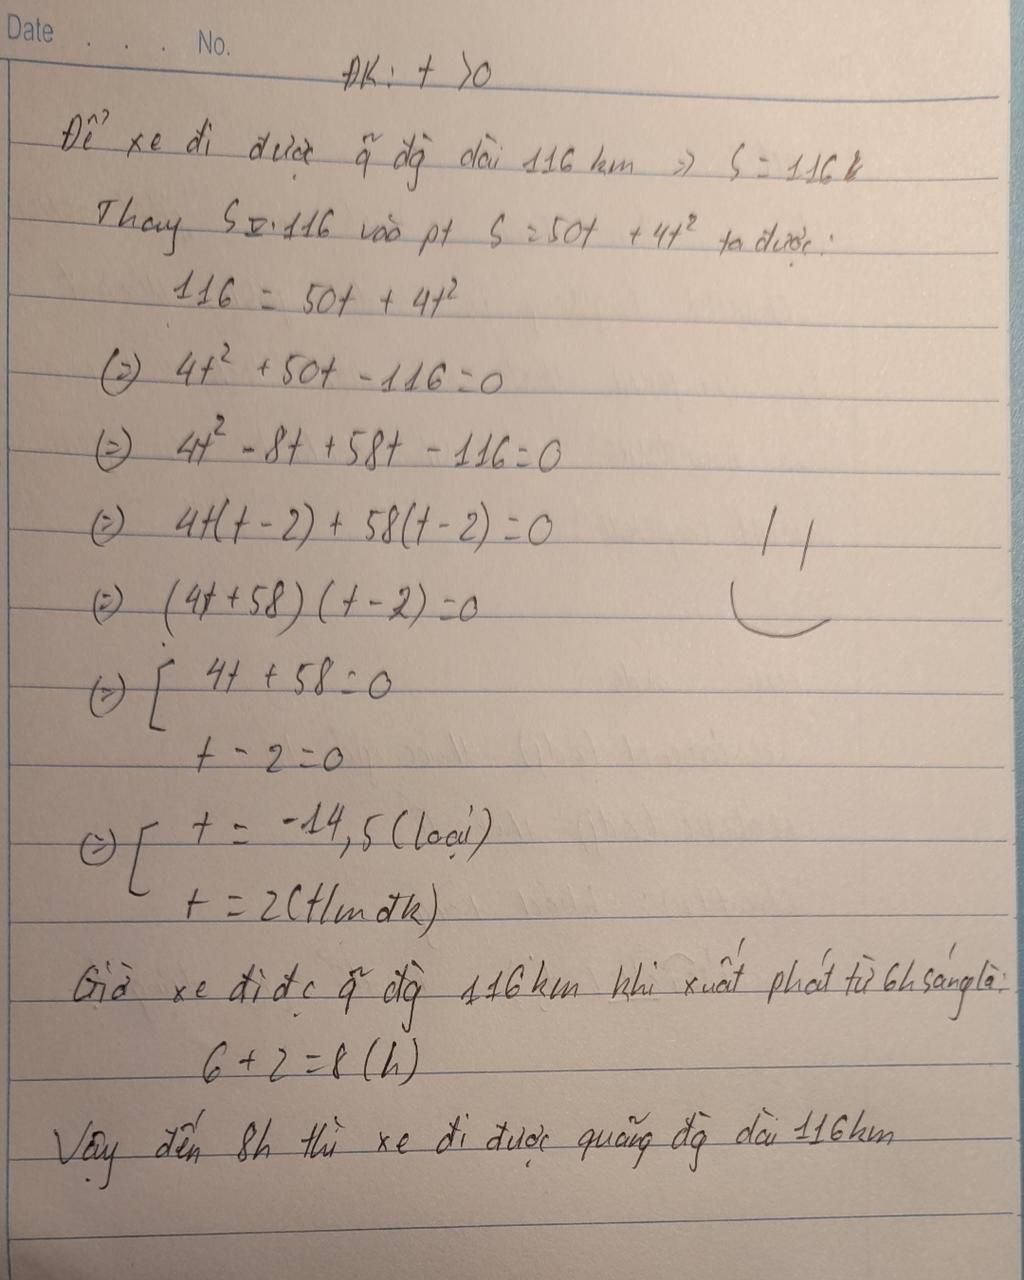 Date . . . No.
ĐK: t >0
Để xe đi được q̃ đg̀ dài 116 km => S = 116
Thay S = 116 vào pt S = 50t + 4t² ta được:
116 = 50t + 4t²
(=) 4t² + 50t - 116 = 0
(=) 4t² - 8t + 58t - 116 = 0
(=) 4t(t - 2) + 58(t - 2) = 0
(=) (4t + 58) (t - 2) = 0
(=) [ 4t + 58 = 0
t - 2 = 0
(=) [ t = -14,5 (loại)
t = 2 (t/m đk)
Giờ xe đi đc q̃ đg̀ 116 km khi xuất phát từ 6h sáng là:
6 + 2 = 8 (h)
Vậy đến 8h thì xe đi được quãng đg̀ dài 116 km